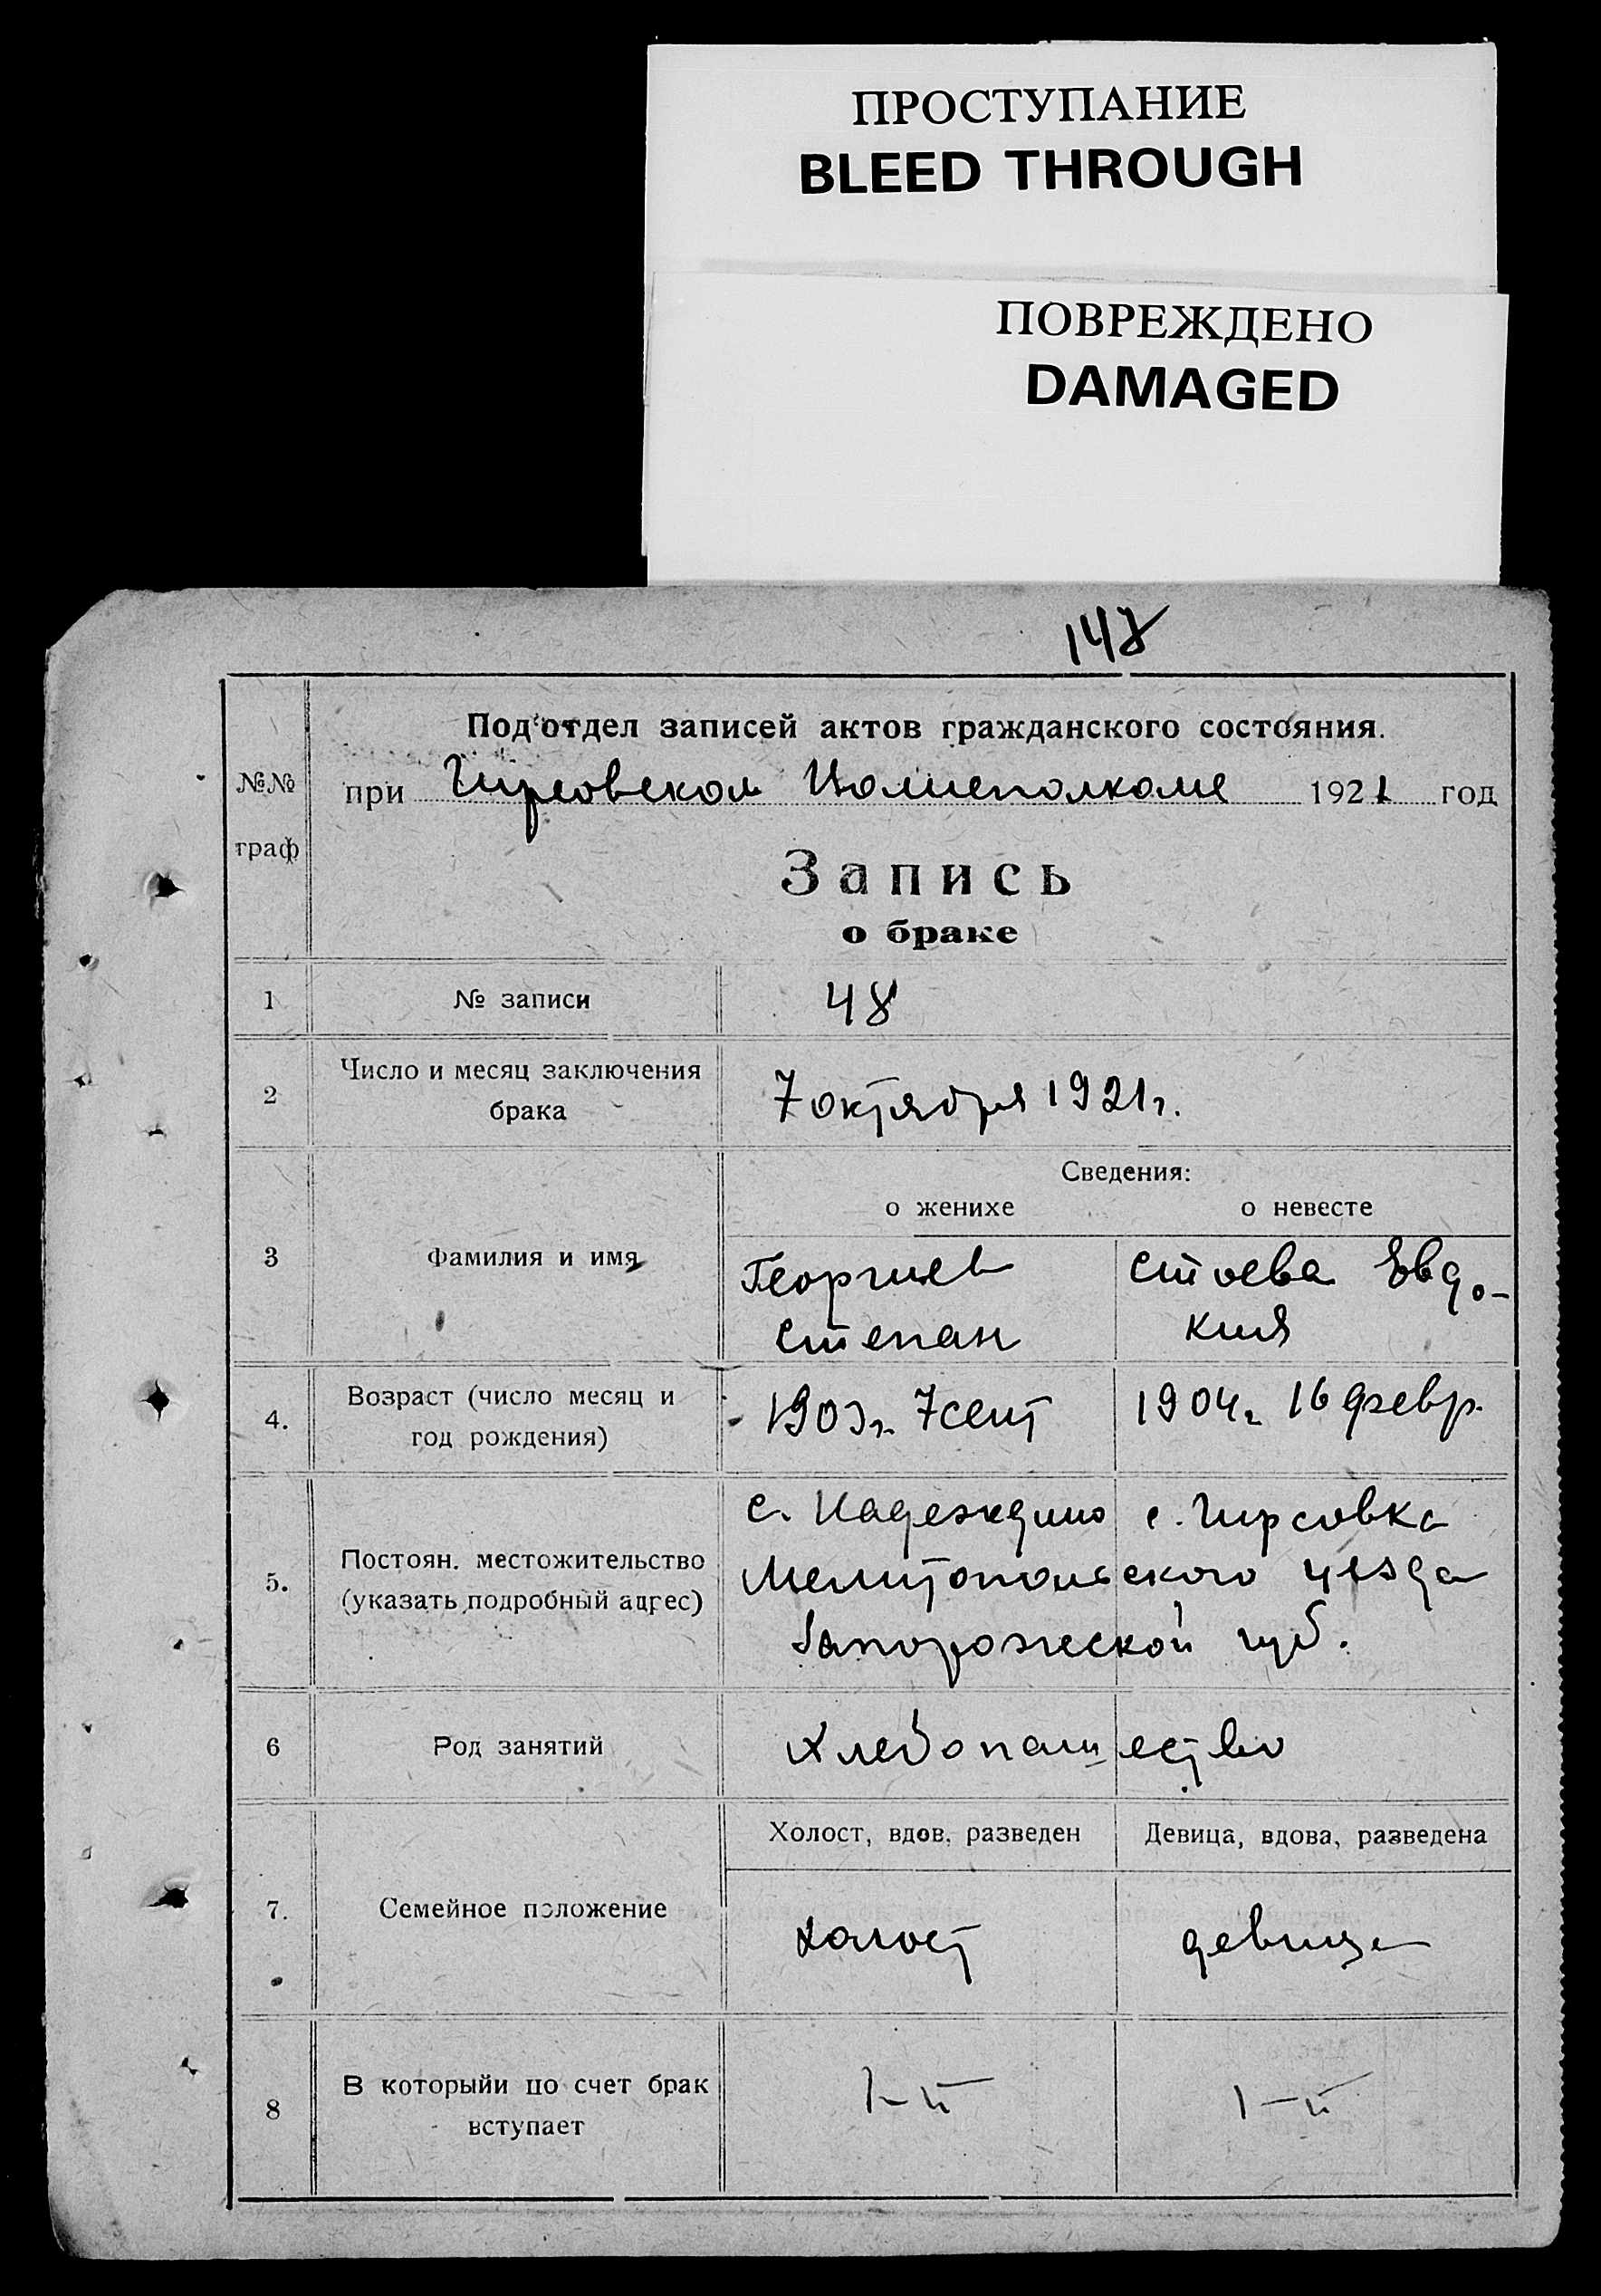 ПРОСТУПАНИЕ
BLEED THROUGH
ПОВРЕЖДЕНО
DAMAGED
147
№№
граф
Подотдел записей актов гражданского состояния.
при Гирсовском Волисполкоме 1921 год
Запись
о браке
1 № записи 48
2 Число и месяц заключения
брака
7 октября 1921 г.
Сведения:
о женихе о невесте
3 Фамилия и имя
Георгиев Стоева Евдо-
Степан кия
4. Возраст (число месяц и
год рождения)
1903 г. 7 сент 1904 г. 16 февр.
5. Постоян. местожительство
(указать подробный адрес)
с. Надеждино с. Гирсовка
Мелитопольского уезда
Запорожской губ.
6 Род занятий Хлебопашество
Холост, вдов, разведен Девица, вдова, разведена
7. Семейное положение
холост девица
8 В которыйи по счет брак
вступает
1-й 1-й